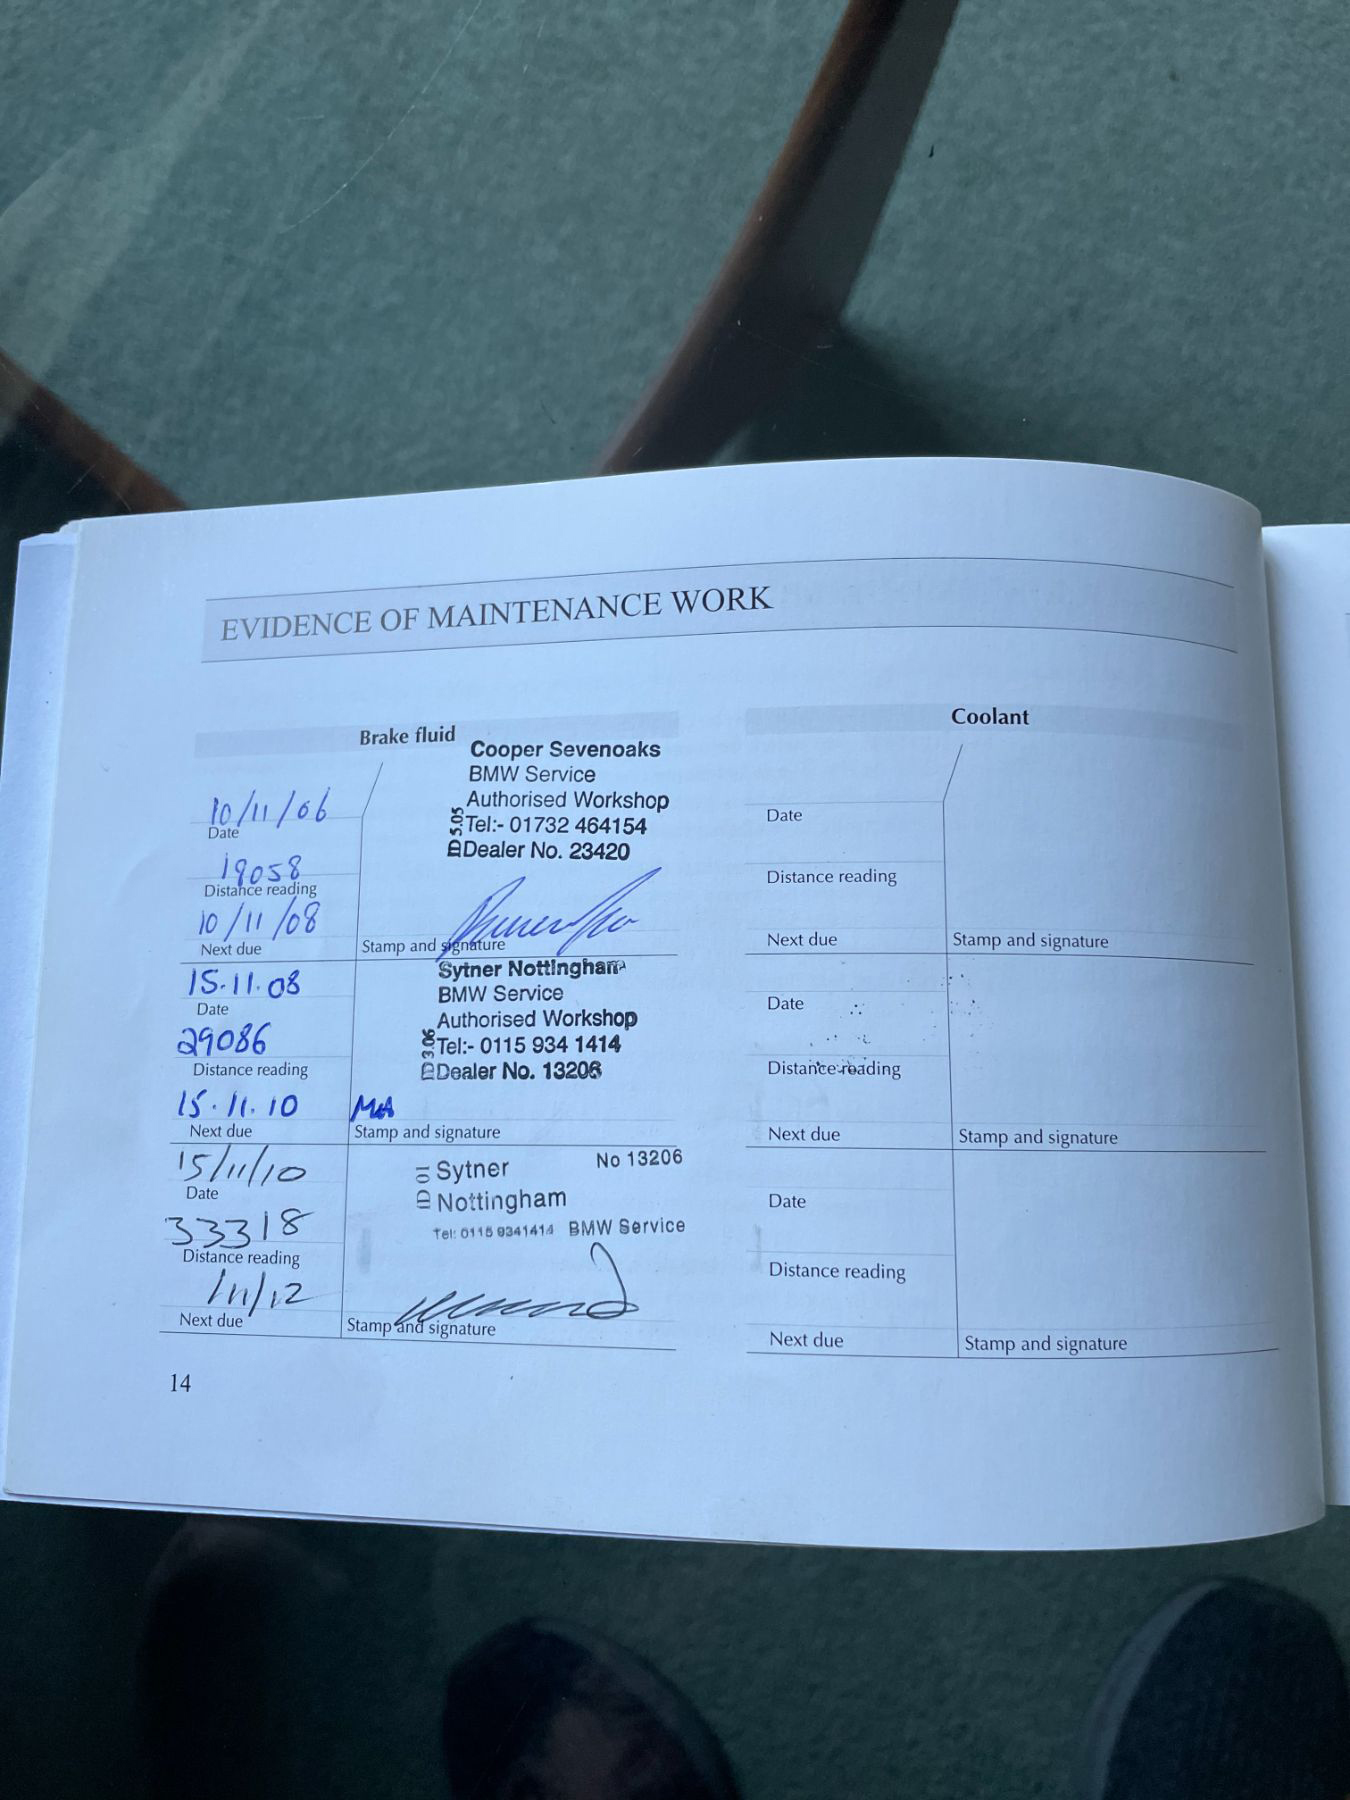 EVIDENCE OF MAINTENANCE WORK
Brake fluid
Cooper Sevenoaks
BMW Service
Authorised Workshop
Tel:- 01732 464154
Dealer No. 23420
ID 5.05
10/11/06
Date
19058
Distance reading
10/11/08
Next due
Stamp and signature
Sytner Nottingham
BMW Service
Authorised Workshop
Tel:- 0115 934 1414
Dealer No. 13206
ID 3.06
15.11.08
Date
29086
Distance reading
15.11.10
Next due
MA
Stamp and signature
Sytner No 13206
Nottingham
Tel: 0115 9341414 BMW Service
ID 01
15/11/10
Date
33318
Distance reading
/11/12
Next due
Stamp and signature
Coolant
Date
Distance reading
Next due
Stamp and signature
Date
Distance reading
Next due
Stamp and signature
Date
Distance reading
Next due
Stamp and signature
14